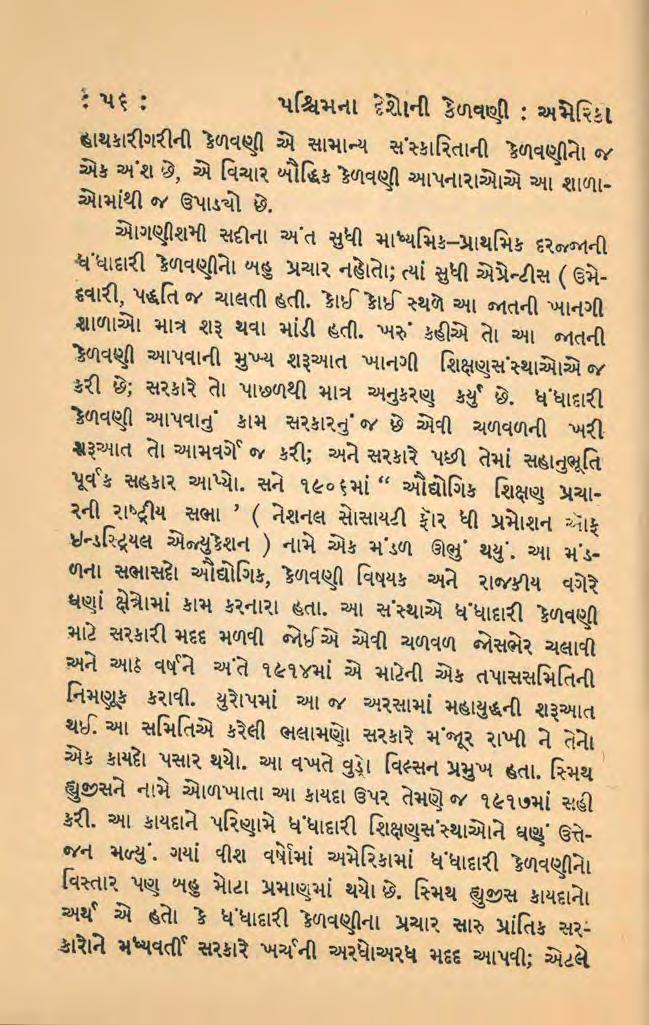 : ૫૬ : પશ્ચિમના દેશોની કેળવણી : અમેરિકા
હાથકારીગરીની કેળવણી એ સામાન્ય સંસ્કારિતાની કેળવણીનો જ
એક અંશ છે, એ વિચાર બૌદ્ધિક કેળવણી આપનારાઓએ આ શાળા-
ઓમાંથી જ ઉપાડ્યો છે.
ઓગણીશમી સદીના અંત સુધી માધ્યમિક–પ્રાથમિક દરજ્જાની
ધંધાદારી કેળવણીનો બહુ પ્રચાર નહોતો; ત્યાં સુધી એપ્રેન્ટીસ ( ઉમે-
દવારી, પદ્ધતિ જ ચાલતી હતી. કોઈ કોઈ સ્થળે આ જાતની ખાનગી
શાળાઓ માત્ર શરૂ થવા માંડી હતી. ખરું કહીએ તો આ જાતની
કેળવણી આપવાની મુખ્ય શરૂઆત ખાનગી શિક્ષણસંસ્થાઓએ જ
કરી છે; સરકારે તો પાછળથી માત્ર અનુકરણ કર્યું છે. ધંધાદારી
કેળવણી આપવાનું કામ સરકારનું જ છે એવી ચળવળની ખરી
શરૂઆત તો આમવર્ગે જ કરી; અને સરકારે પછી તેમાં સહાનુભૂતિ
પૂર્વક સહકાર આપ્યો. સને ૧૯૦૬માં “ ઔદ્યોગિક શિક્ષણ પ્રચા-
રની રાષ્ટ્રીય સભા ’ ( નેશનલ સોસાયટી ફૉર ધી પ્રમોશન ઑફ
ઇન્ડસ્ટ્રિયલ એજ્યુકેશન ) નામે એક મંડળ ઊભું થયું. આ મંડ-
ળના સભાસદો ઔદ્યોગિક, કેળવણી વિષયક અને રાજકીય વગેરે
ઘણાં ક્ષેત્રોમાં કામ કરનારા હતા. આ સંસ્થાએ ધંધાદારી કેળવણી
માટે સરકારી મદદ મળવી જોઈએ એવી ચળવળ જોસભેર ચલાવી
અને આઠ વર્ષને અંતે ૧૯૧૪માં એ માટેની એક તપાસસમિતિની
નિમણૂક કરાવી. યુરોપમાં આ જ અરસામાં મહાયુદ્ધની શરૂઆત
થઈ. આ સમિતિએ કરેલી ભલામણો સરકારે મંજૂર રાખી ને તેનો
એક કાયદો પસાર થયો. આ વખતે વુડ્રો વિલ્સન પ્રમુખ હતા. સ્મિથ
હ્યુજીસને નામે ઓળખાતા આ કાયદા ઉપર તેમણે જ ૧૯૧૭માં સહી
કરી. આ કાયદાને પરિણામે ધંધાદારી શિક્ષણસંસ્થાઓને ઘણું ઉત્તે-
જન મળ્યું. ગયાં વીશ વર્ષોમાં અમેરિકામાં ધંધાદારી કેળવણીનો
વિસ્તાર પણ બહુ મોટા પ્રમાણમાં થયો છે. સ્મિથ હ્યુજીસ કાયદાનો
અર્થ એ હતો કે ધંધાદારી કેળવણીના પ્રચાર સારુ પ્રાંતિક સર-
કારોને મધ્યવર્તી સરકારે ખર્ચની અરધોઅરધ મદદ આપવી; એટલે